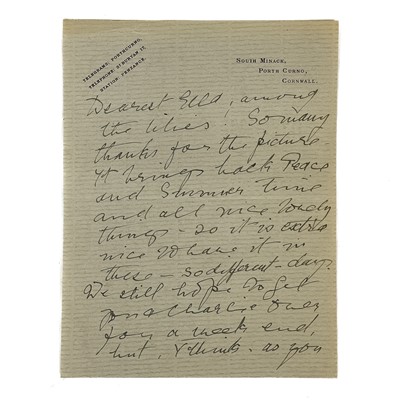 TELEGRAMS, PORTHCURNO.
TELEPHONE, ST BURYAN 17.
STATION PENZANCE.
SOUTH MINACK,
PORTH CURNO,
CORNWALL.
Dearest Ella, among
the lilies! So many
thanks for the picture.
It brings back Peace
and Summer time
and all nice lovely
things - so it is extra
nice to have it in
these - so different - days.
We still hope to get
you & Charlie over
for a week end,
but, I think - as you